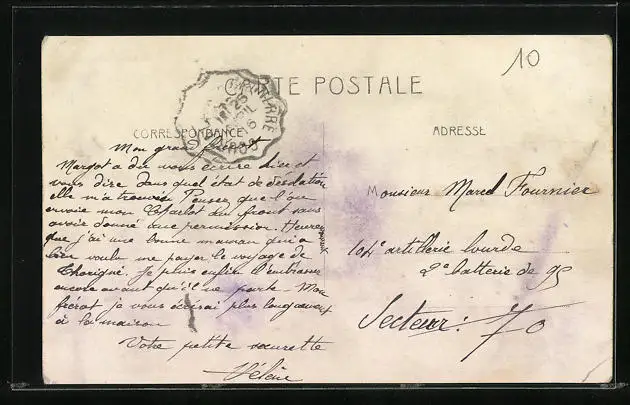 10
CARTE POSTALE
CORRESPONDANCE
ADRESSE
Mon grand
Margot a dû vous écrire hier et
vous dire dans quel état de désolation
elle m'a trouvée. Pensez que l'on
envoie mon Charlot au front sans
avoir donné une permission. Heureu
que j'ai une bonne maman qui a
bien voulu me payer le voyage de
Thorigné. Je puis enfin l'embrasser
encore avant qu'il ne parte. Mon
frérot je vous écrirai plus longuement
à la maison
Votre petite sœurette
Hélène
Monsieur Marcel Fournier
104e artillerie lourde
2e batterie de 95
Secteur: 70